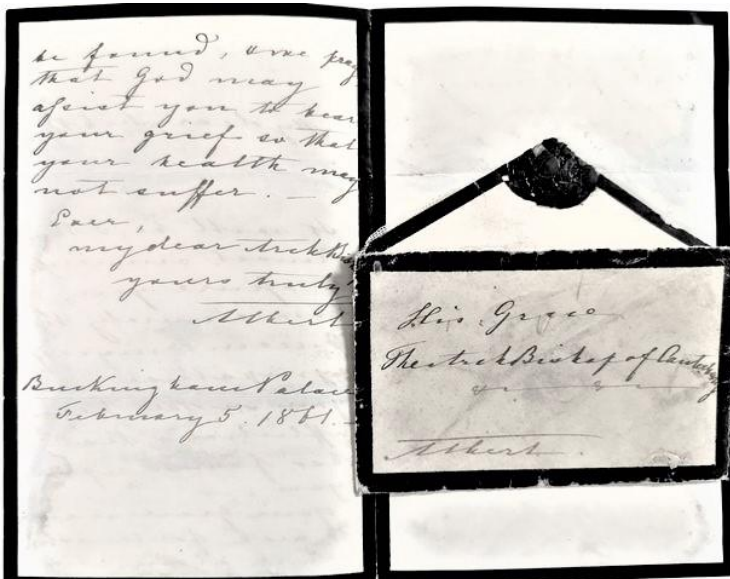 be found, & we pray
that God may
assist you to bear
your grief so that
your health may
not suffer. —
Ever,
my dear ArchB
yours truly
Albert
Buckingham Palace
February 5. 1861.
His Grace
The ArchBishop of Canterbury
Albert.